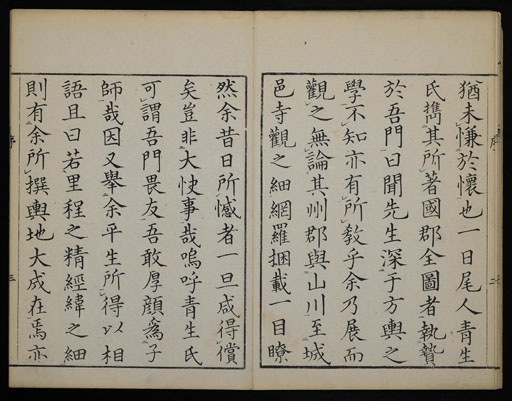 猶未慊於懷也一日尾人青生
氏携其所著國郡全圖者執贄
於吾門曰聞先生深于方輿之
學不知亦有所敎乎余乃展而
觀之無論其州郡與山川至城
邑寺觀之細網羅捆載一目瞭
然余昔日所憾者一旦咸得償
矣豈非大快事哉嗚呼青生氏
可謂吾門畏友吾敢厚顔爲子
師哉因又擧余平生所得以相
語且曰若里程之精經緯之細
則有余所撰輿地大成在焉亦
序
三